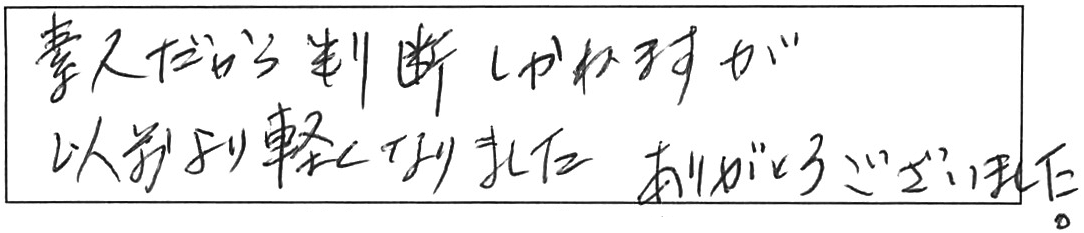 素人だから判断しかねますが
以前より軽くなりました ありがとうございました。